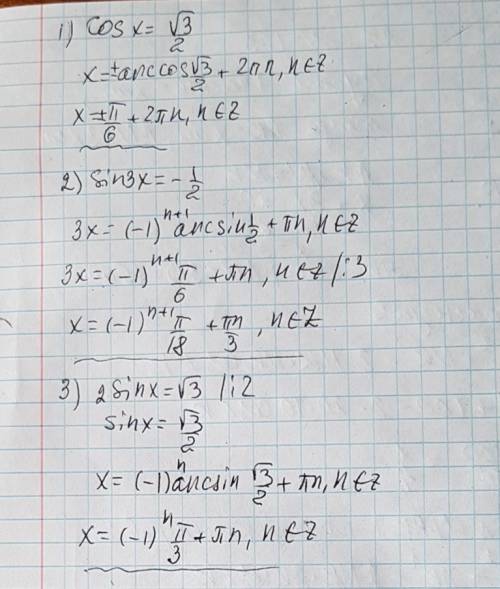 1) cos x = √3/2
x = ± arccos √3/2 + 2πn, n ∈ Z
x = ± π/6 + 2πn, n ∈ Z
2) sin3x = - 1/2
3x = (-1)^(n+1) arcsin 1/2 + πn, n ∈ Z
3x = (-1)^(n+1) π/6 + πn, n ∈ Z /:3
x = (-1)^(n+1) π/18 + πn/3, n ∈ Z
3) 2 sin x = √3 /:2
sin x = √3/2
x = (-1)^n arcsin √3/2 + πn, n ∈ Z
x = (-1)^n π/3 + πn, n ∈ Z